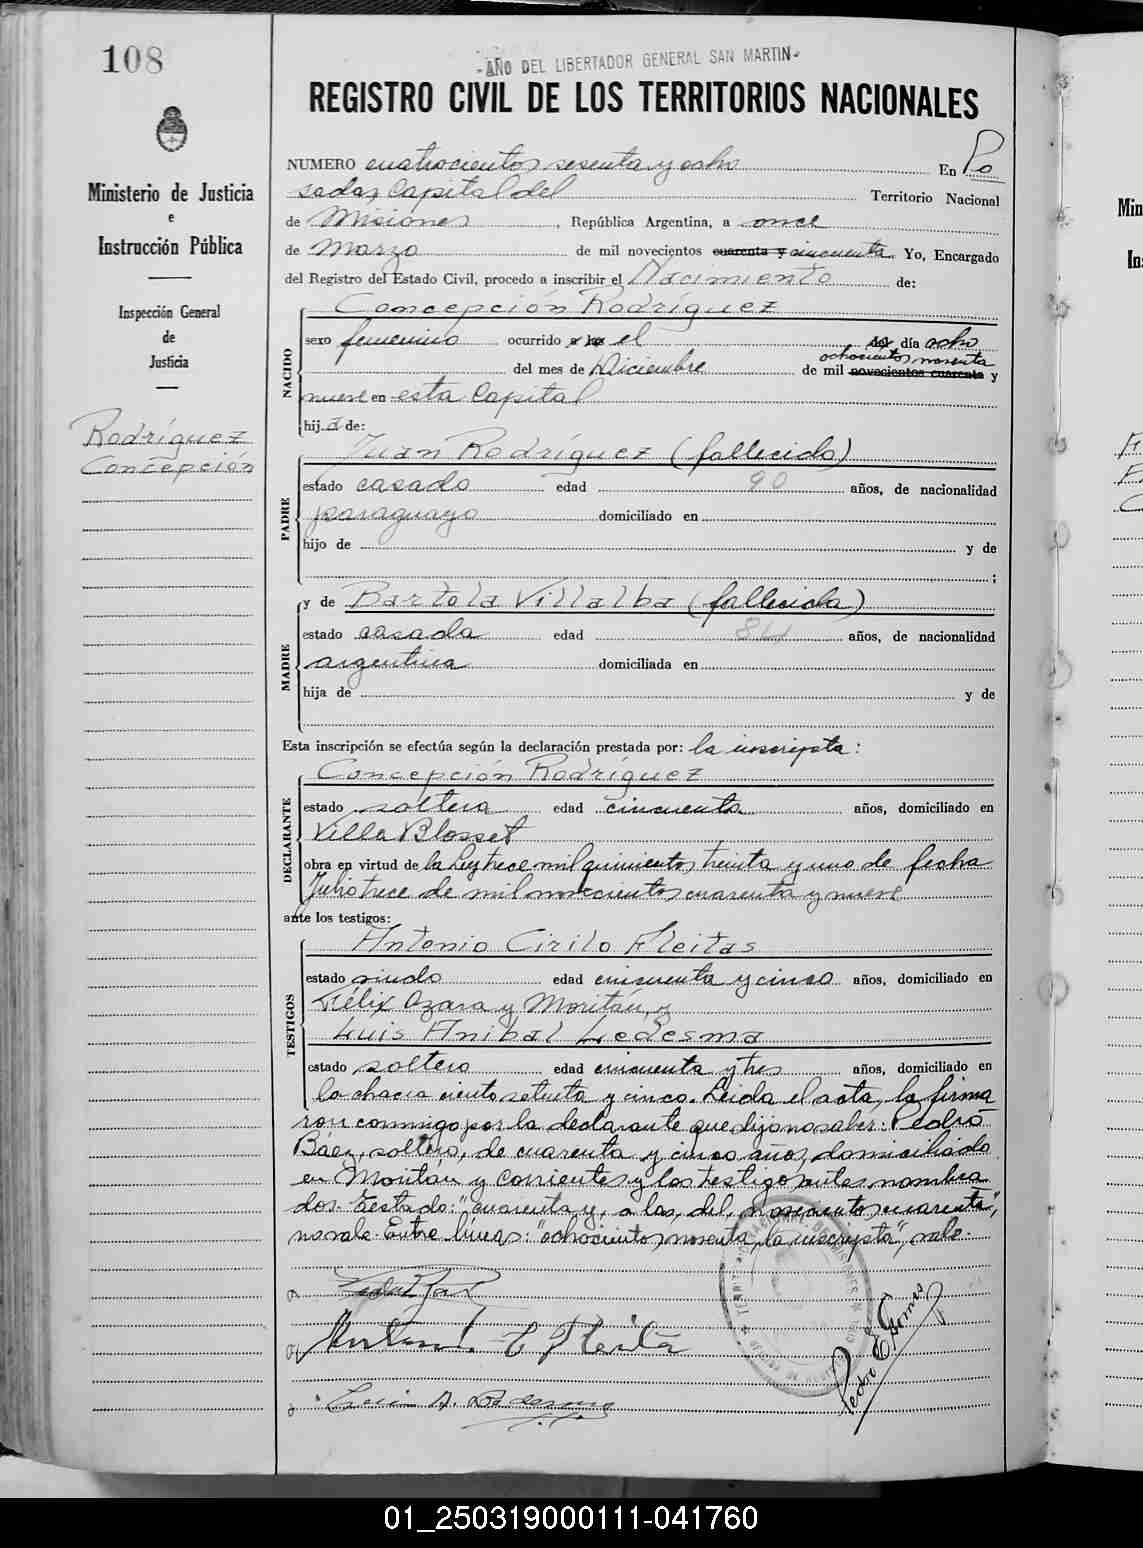 108
- AÑO DEL LIBERTADOR GENERAL SAN MARTIN -
REGISTRO CIVIL DE LOS TERRITORIOS NACIONALES
Ministerio de Justicia
e
Instrucción Pública
Inspección General
de
Justicia
Rodríguez
Concepción
NUMERO cuatrocientos sesenta y ocho En Po
sadas Capital del Territorio Nacional
de Misiones, República Argentina, a once
de Marzo de mil novecientos cuarenta y cincuenta Yo, Encargado
del Registro del Estado Civil, procedo a inscribir el Nacimiento de:
NACIDO
Concepción Rodríguez
sexo femenino ocurrido a las el del día ocho
ochocientos noventa
del mes de Diciembre de mil novecientos cuarenta y
nueve en esta Capital
hija de:
PADRE
Juan Rodríguez (fallecido)
estado casado edad 90 años, de nacionalidad
paraguayo domiciliado en
hijo de y de
;
MADRE
y de Bartola Villalba (fallecida)
estado casada edad 84 años, de nacionalidad
argentina domiciliada en
hija de y de
Esta inscripción se efectúa según la declaración prestada por: la inscripta:
DECLARANTE
Concepción Rodríguez
estado soltera edad cincuenta años, domiciliado en
Villa Blosset
obra en virtud de la Ley trece mil quinientos treinta y uno de fecha
Julio trece de mil novecientos cuarenta y nueve
ante los testigos:
TESTIGOS
Antonio Cirilo Fleitas
estado viudo edad cincuenta y cinco años, domiciliado en
Félix Azara y Moritán, y
Luis Anibal Ledesma
estado soltero edad cincuenta y tres años, domiciliado en
la chacra ciento setenta y cinco. Leida el acta, la firma
ron conmigo por la declarante que dijo no saber: Pedro
Báez, soltero, de cuarenta y cinco años, domiciliado
en Moritán y Corrientes y los testigos antes nombra
dos. Testado: "cuarenta y, a las, del, novecientos cuarenta",
no vale. Entre líneas: "ochocientos noventa, la inscripta", vale.
Antonio C Fleita
Luis A. Ledesma
Pedro E. Gomes
01_250319000111-041760